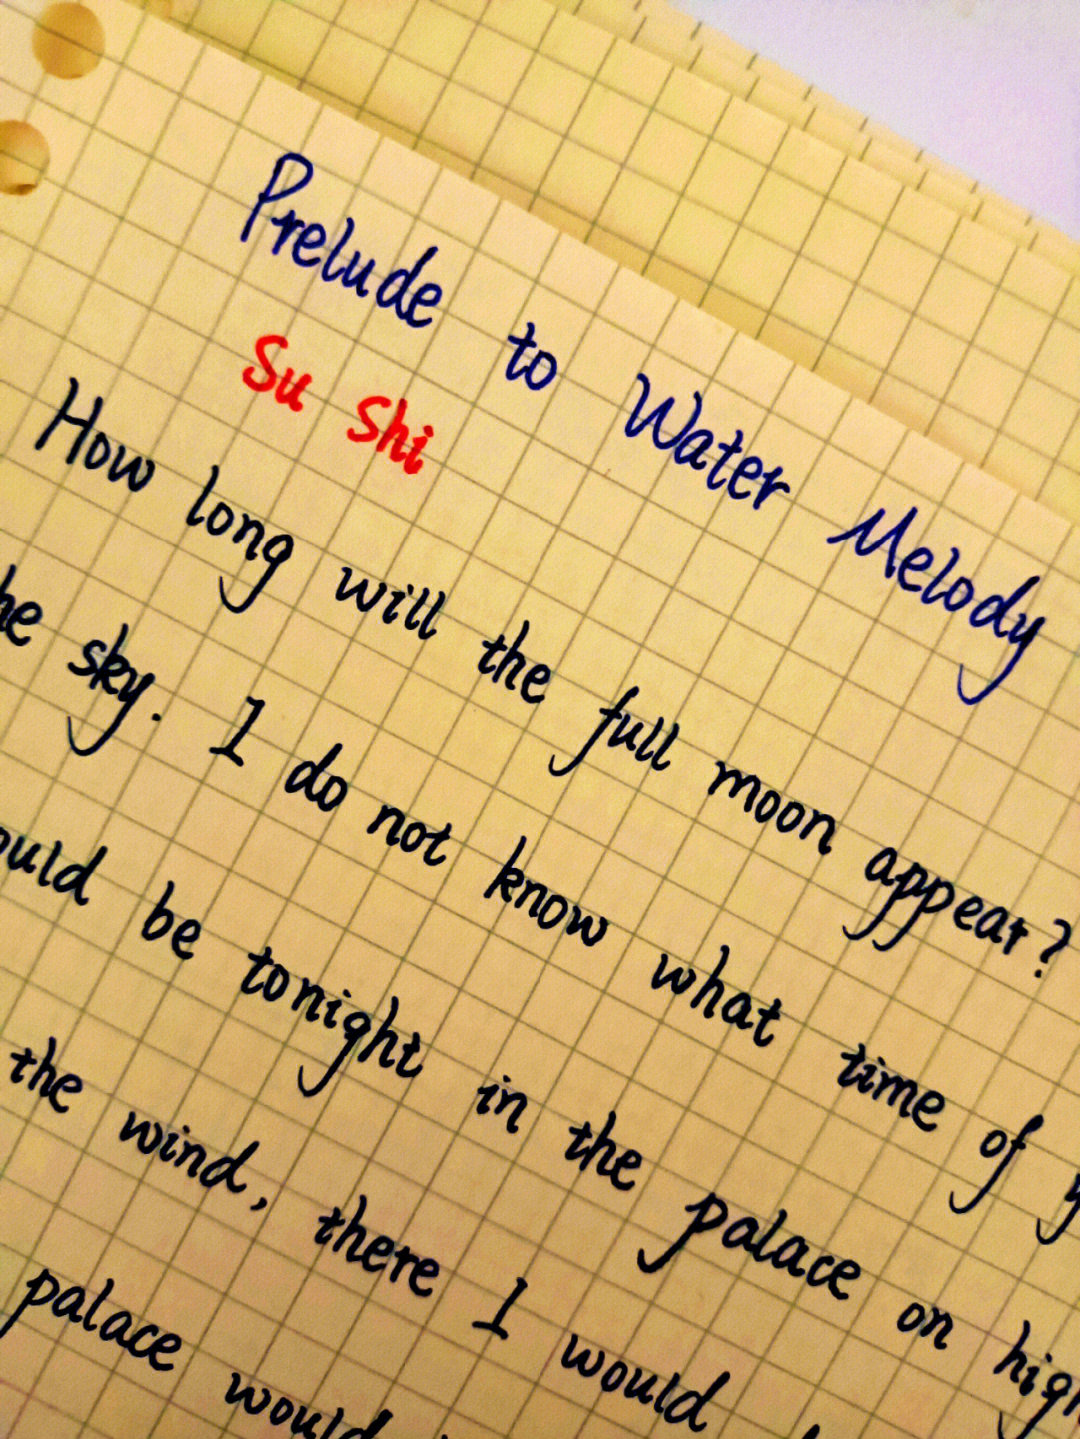 Prelude to Water Melody
Su Shi
How long will the full moon appear?
sky. I do not know what time of
be tonight in the palace on
the wind, there I would
palace would